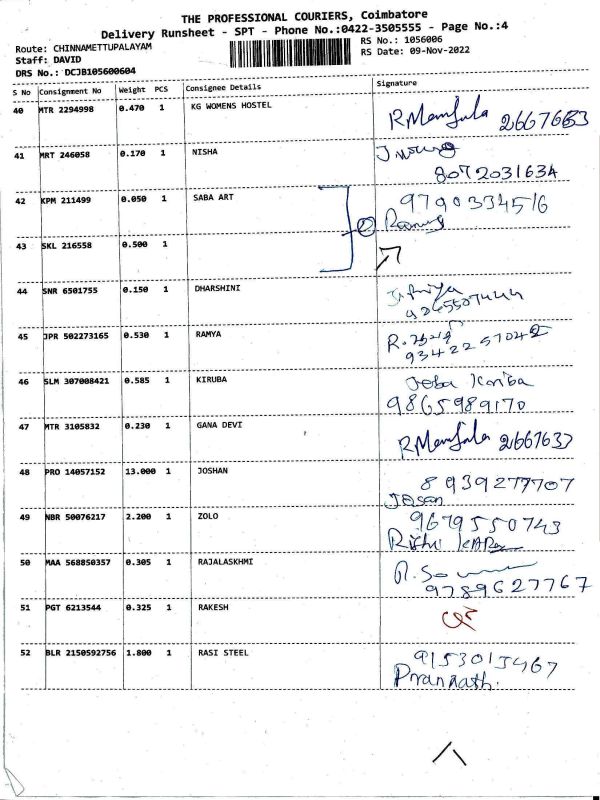 THE PROFESSIONAL COURIERS, Coimbatore
Delivery Runsheet - SPT - Phone No.:0422-3505555 - Page No.:4
Route: CHINNAMETTUPALAYAM
RS No.: 1056006
Staff: DAVID
RS Date: 09-Nov-2022
DRS No.: DCJB105600604
S No Consignment No Weight PCS Consignee Details Signature
40 MTR 2294998 0.470 1 KG WOMENS HOSTEL
R Manjula 2667663
41 MRT 246058 0.170 1 NISHA
8072031634
42 KPM 211499 0.050 1 SABA ART
9790334516
2
43 SKL 216558 0.500 1
44 SNR 6501755 0.150 1 DHARSHINI
45 JPR 502273165 0.530 1 RAMYA
46 SLM 307008421 0.585 1 KIRUBA
Jeba Kiriba
9865989170
47 MTR 3105832 0.230 1 GANA DEVI
R Manjula 2667637
48 PRO 14057152 13.000 1 JOSHAN
8939277707
Jossan
49 NBR 50076217 2.200 1 ZOLO
9679550743
Rishi
50 MAA 568850357 0.305 1 RAJALASKHMI
9789627767
51 PGT 6213544 0.325 1 RAKESH
52 BLR 2150592756 1.800 1 RASI STEEL
9153015467
Prannath.